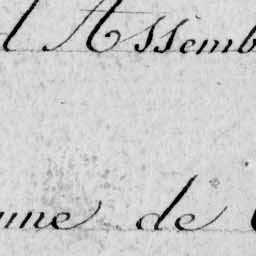 l'Assemb
une de